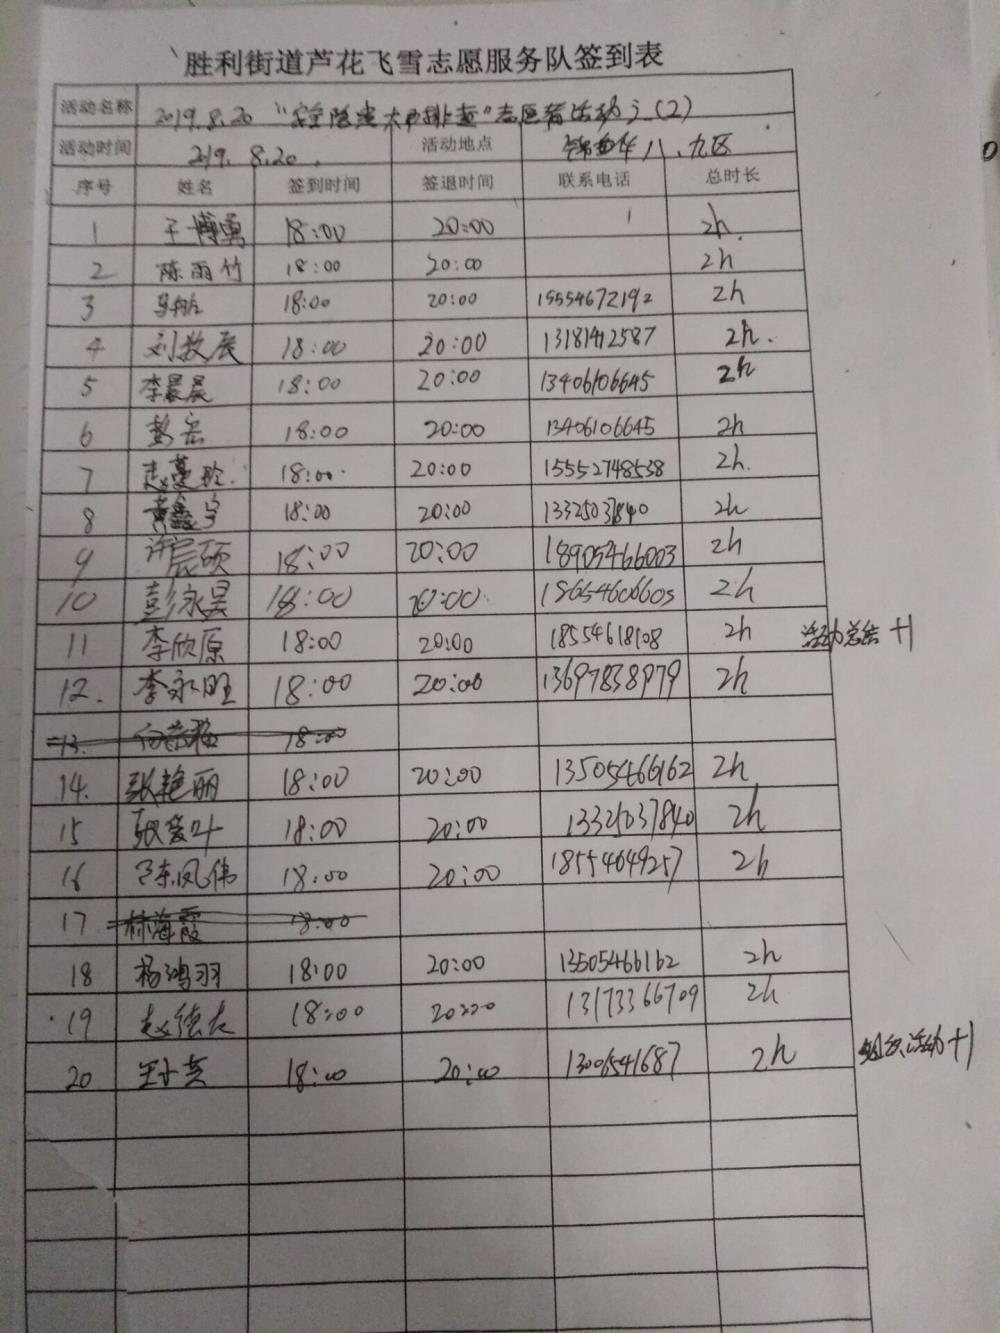 胜利街道芦花飞雪志愿服务队签到表
活动名称 2019.8.20 "安全隐患大排查"志愿者活动之(2)
活动时间 2019.8.20. 活动地点 锦华八、九区
序号 姓名 签到时间 签退时间 联系电话 总时长
1 于博勇 18:00 20:00 2h.
2 陈雨竹 18:00 20:00 2h
3 18:00 20:00 15554672192 2h
4 刘教辰 18:00 20:00 13181412587 2h.
5 李晨昊 18:00 20:00 13406106645 2h
6 彭岳 18:00 20:00 13406106645 2h
7 赵蔓玲 18:00 20:00 15552748538 2h.
8 黄鑫宇 18:00 20:00 13325037840 2h
9 许宸硕 18:00 20:00 18905466003 2h
10 彭泳昊 18:00 20:00 18654606605 2h
11 李欣原 18:00 20:00 18554618108 2h 活动总结+1
12. 李永旺 18:00 20:00 13697838979 2h
13. 18:00
14. 张艳丽 18:00 20:00 13505466162 2h
15 张爱叶 18:00 20:00 13325037840 2h
16 陈凤伟 18:00 20:00 18554649257 2h
17 林海霞 18:00
18 杨鸿羽 18:00 20:00 13505466162 2h
19 赵德友 18:00 20:00 13173366709 2h
20 王小芸 18:00 20:00 13006541687 2h 组织活动+1